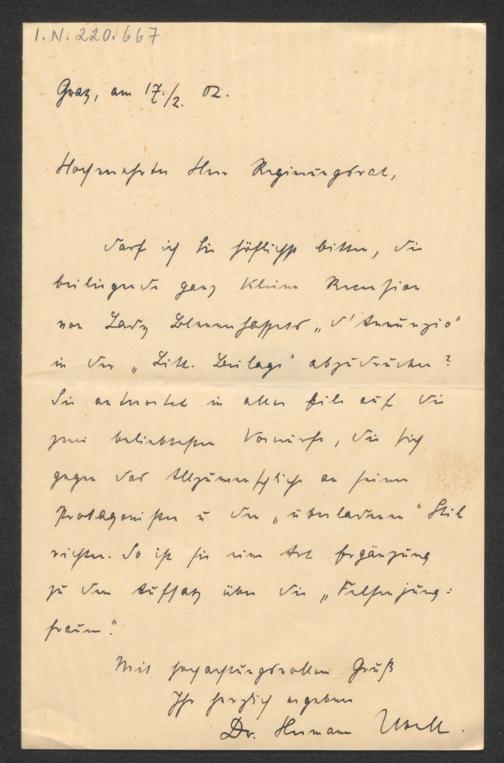 I.N. 220.667
Graz, am 17./2. 02.
Hochverehrter Herr Regierungsrat,
darf ich Sie höflichst bitten, die
beiliegende ganz kleine Recension
von Lady Blennerhassetts „d'Annunzio"
in der „Litt. Beilage" abzudrucken?
Sie antwortet in aller Eile auf die
zwei beliebtesten Vorwürfe, die sich
gegen das Allzumenschliche an seinen
Protagonisten u den „überladenen" Stil
richten. So ist sie eine Art Ergänzung
zu dem Aufsatz über die „Felsenjung=
frauen".
Mit hochachtungsvollem Gruß
Ihr herzlich ergebener
Dr. Hermann Ubell.